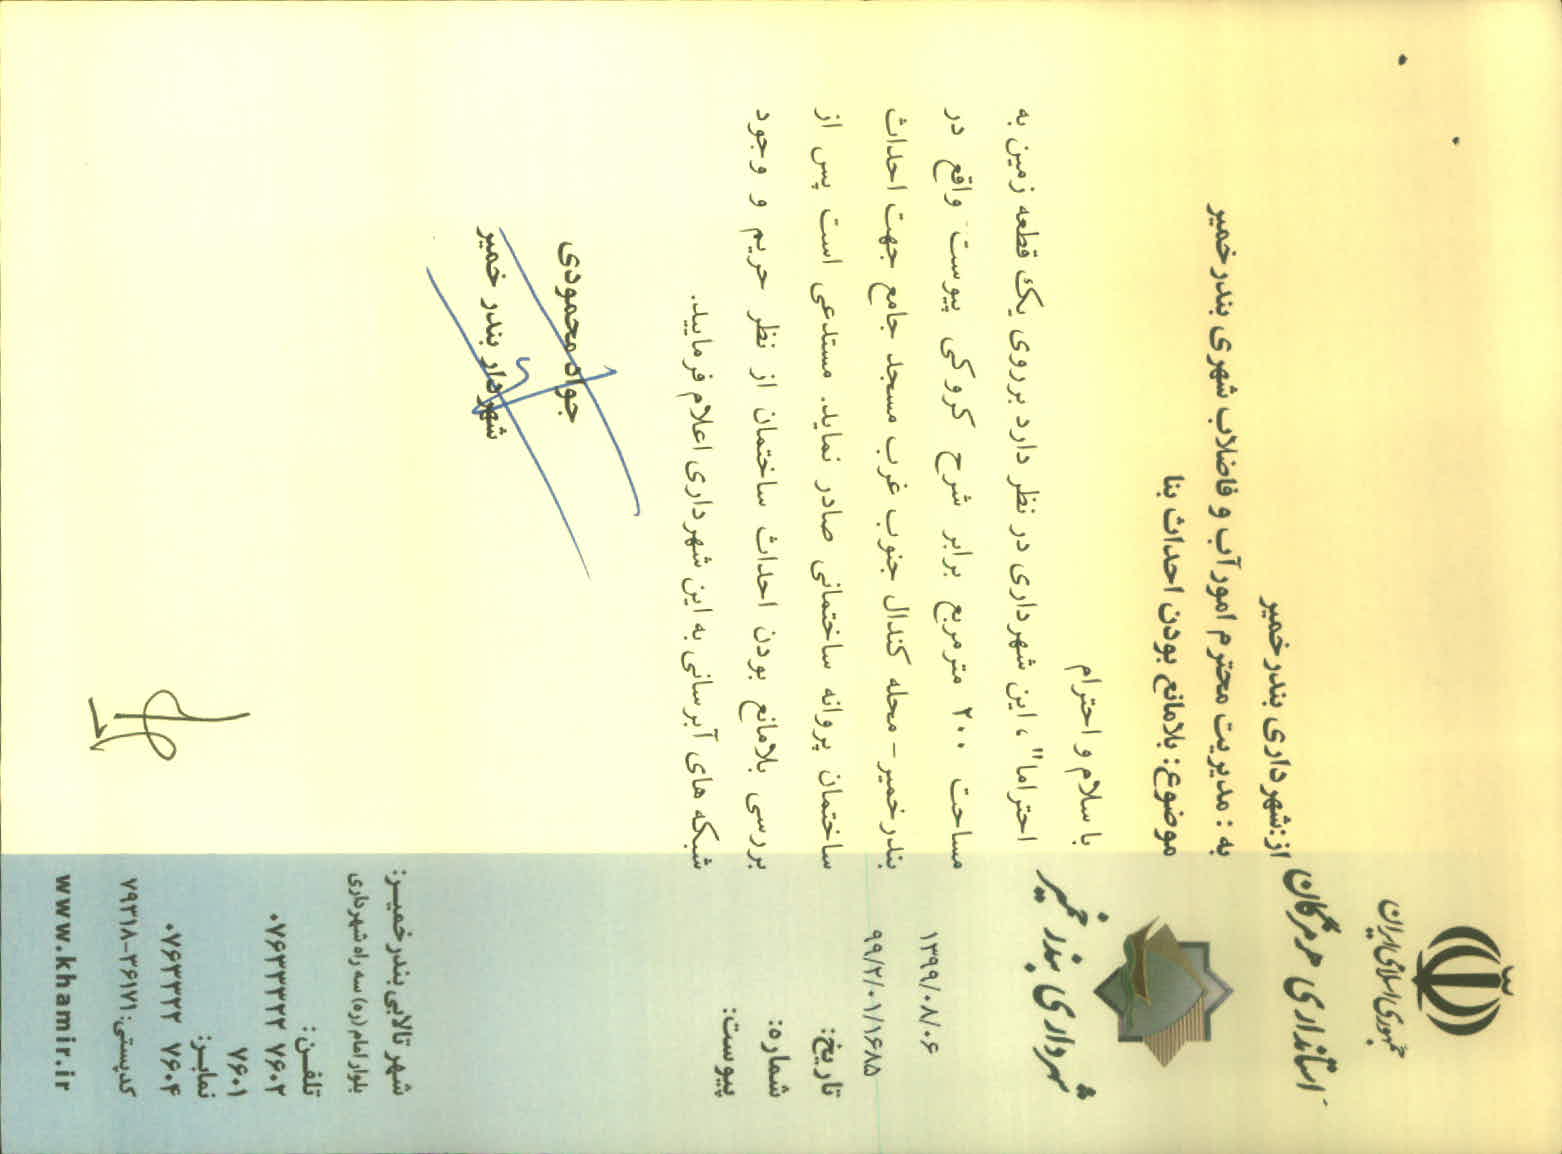 جمهوری اسلامی ایران
استانداری هرمزگان
شهرداری بندر خمیر
۱۳۹۹/۰۸/۰۶
۹۹/۲/۰۱/۱۶۸۵
تاریخ:
شماره:
پیوست:
از:شهرداری بندر خمیر
به : مدیریت محترم امور آب و فاضلاب شهری بندر خمیر
موضوع: بلامانع بودن احداث بنا
با سلام و احترام
احتراما" ، این شهرداری در نظر دارد برروی یک قطعه زمین به
مساحت ۲۰۰ مترمربع برابر شرح کروکی پیوست واقع در
بندرخمیر – محله کندال جنوب غرب مسجد جامع جهت احداث
ساختمان پروانه ساختمانی صادر نماید. مستدعی است پس از
بررسی بلامانع بودن احداث ساختمان از نظر حریم و وجود
شبکه های آبرسانی به این شهرداری اعلام فرمایید.
جواد محمودی
شهردار بندر خمیر
شهر تالابی بندر خمیـر:
بلوار امام (ره) سه راه شهرداری
تلفـن :
۰۷۶۳۳۳۲ ۷۶۰۲
۷۶۰۱
نمابـر:
۰۷۶۳۳۲۲ ۷۶۰۴
کدپستی : ۳۶۱۷۱-۷۹۳۱۸
www.khamir.ir